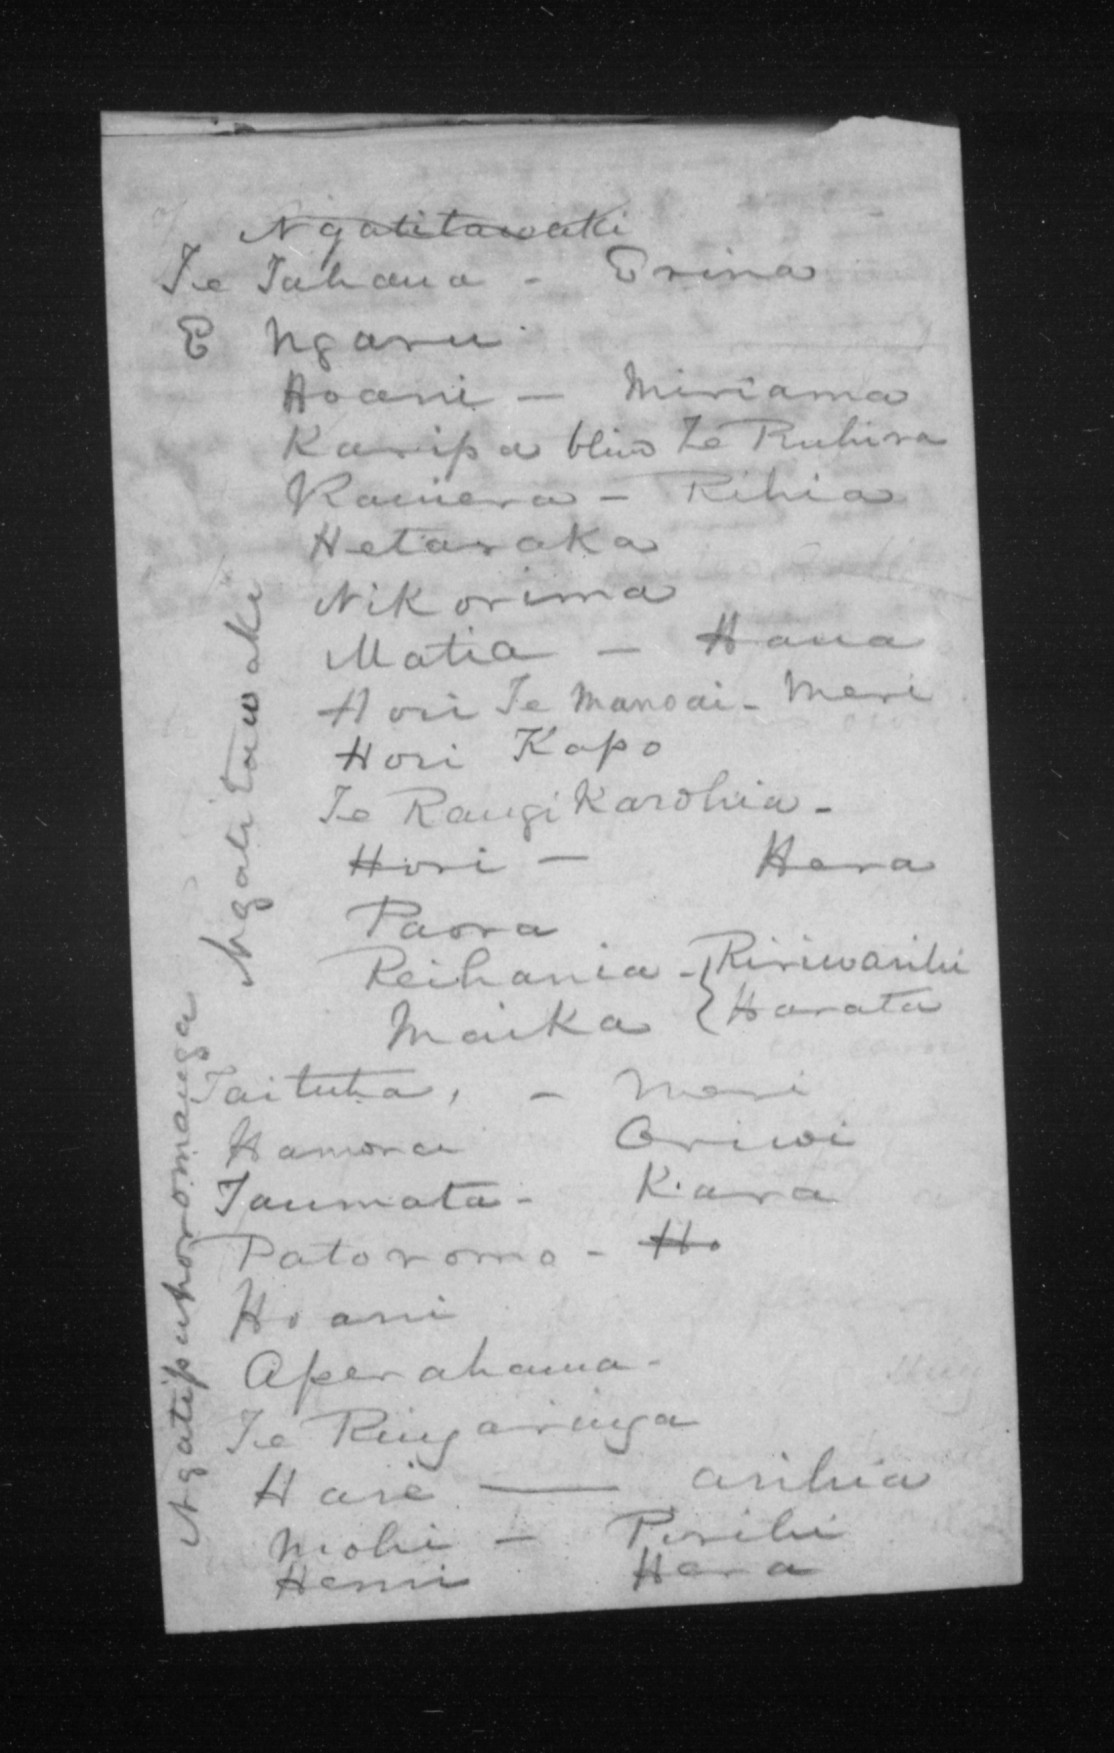 Ngatitawaki
Te Tahana - Erina
E Ngaru
Hoani - Miriama
Karipa Te Ruhira
Kamera - Rihia
Hetaraka
Nikorima
Matia - Hana
Hori Te Manoai - Meri
Hori Kapo
Te Rangi Karohia -
Hori - Hera
Paora
Reihania - Ririwarihi
Maika { Harata
Ngatitawaki
Taituha, - Meri
Hamora Oriwi
Taumata - Kara
Patoromo - Ho
Hoani
Aperahama -
Te Ringaringa
Hare - Arihia
Mohi - Pirihi
Hemi Hera
Ngatipuhoromanga